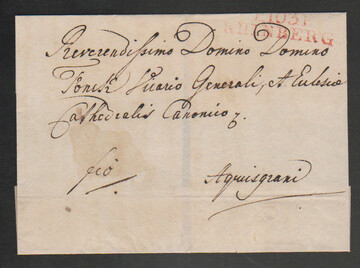 103.
RHINBERG
Reverendissimo Domino Domino
Fonck Vicario Generali, et Eclesia
Cathedralis Canonico
cito
Aquisgrani